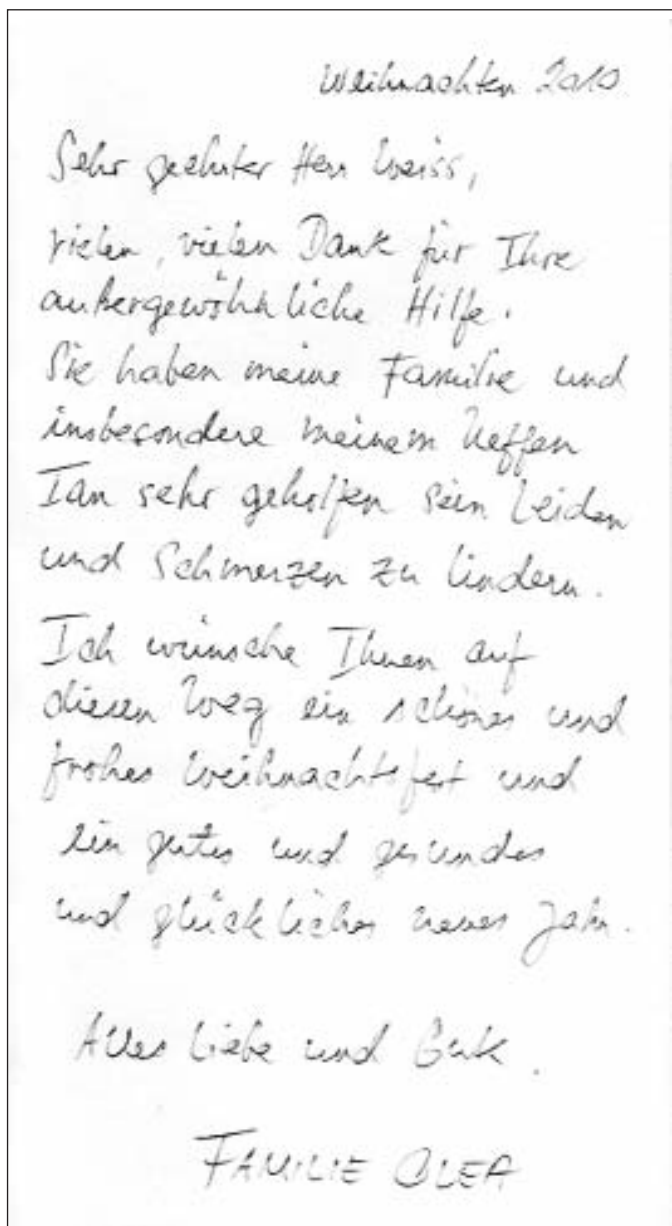 Weihnachten 2010
Sehr geehrter Herr Weiss,
vielen, vielen Dank für Ihre
außergewöhnliche Hilfe.
Sie haben meine Familie und
insbesondere meinem Neffen
Ian sehr geholfen sein Leiden
und Schmerzen zu lindern.
Ich wünsche Ihnen auf
diesen Weg ein schönes und
frohes Weihnachtsfest und
ein gutes und gesundes
und glückliches neues Jahr.
Alles Liebe und Gute.
FAMILIE OLEA